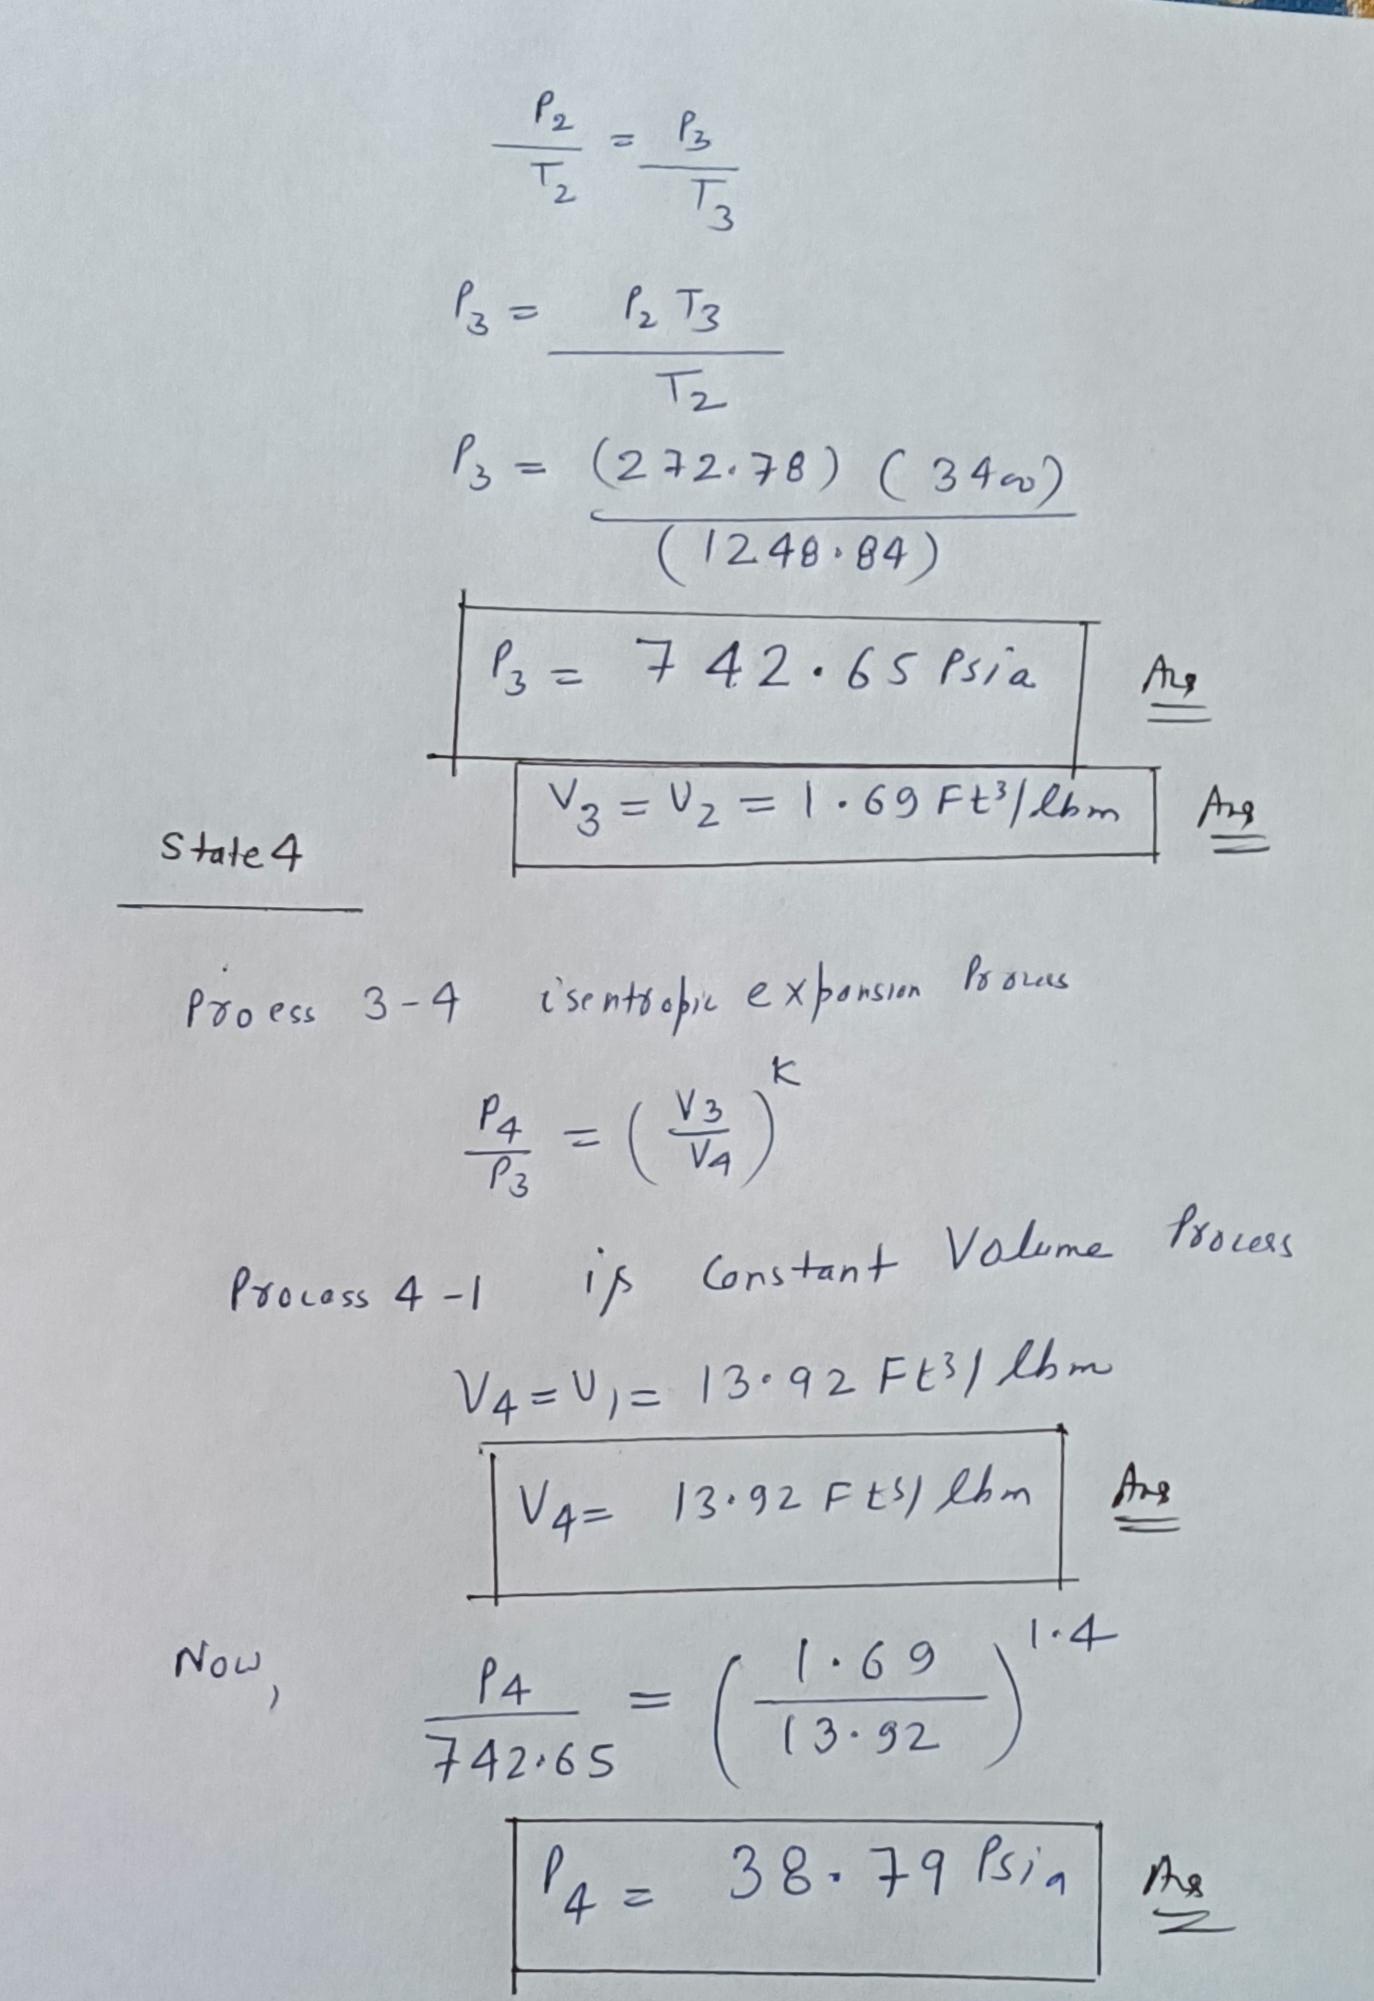 P2/T2 = P3/T3
P3 = P2 T3 / T2
P3 = (272.78) (3400) / (1248.84)
P3 = 742.65 Psia Ans
V3 = V2 = 1.69 Ft³/lbm Ans
State 4
Proess 3-4 isentropic expansion Process
P4/P3 = (V3/V4)^K
Process 4-1 is Constant Volume Process
V4 = V1 = 13.92 Ft3/lbm
V4 = 13.92 Ft3/lbm Ans
Now, P4/742.65 = (1.69/13.92)^1.4
P4 = 38.79 Psia Ans